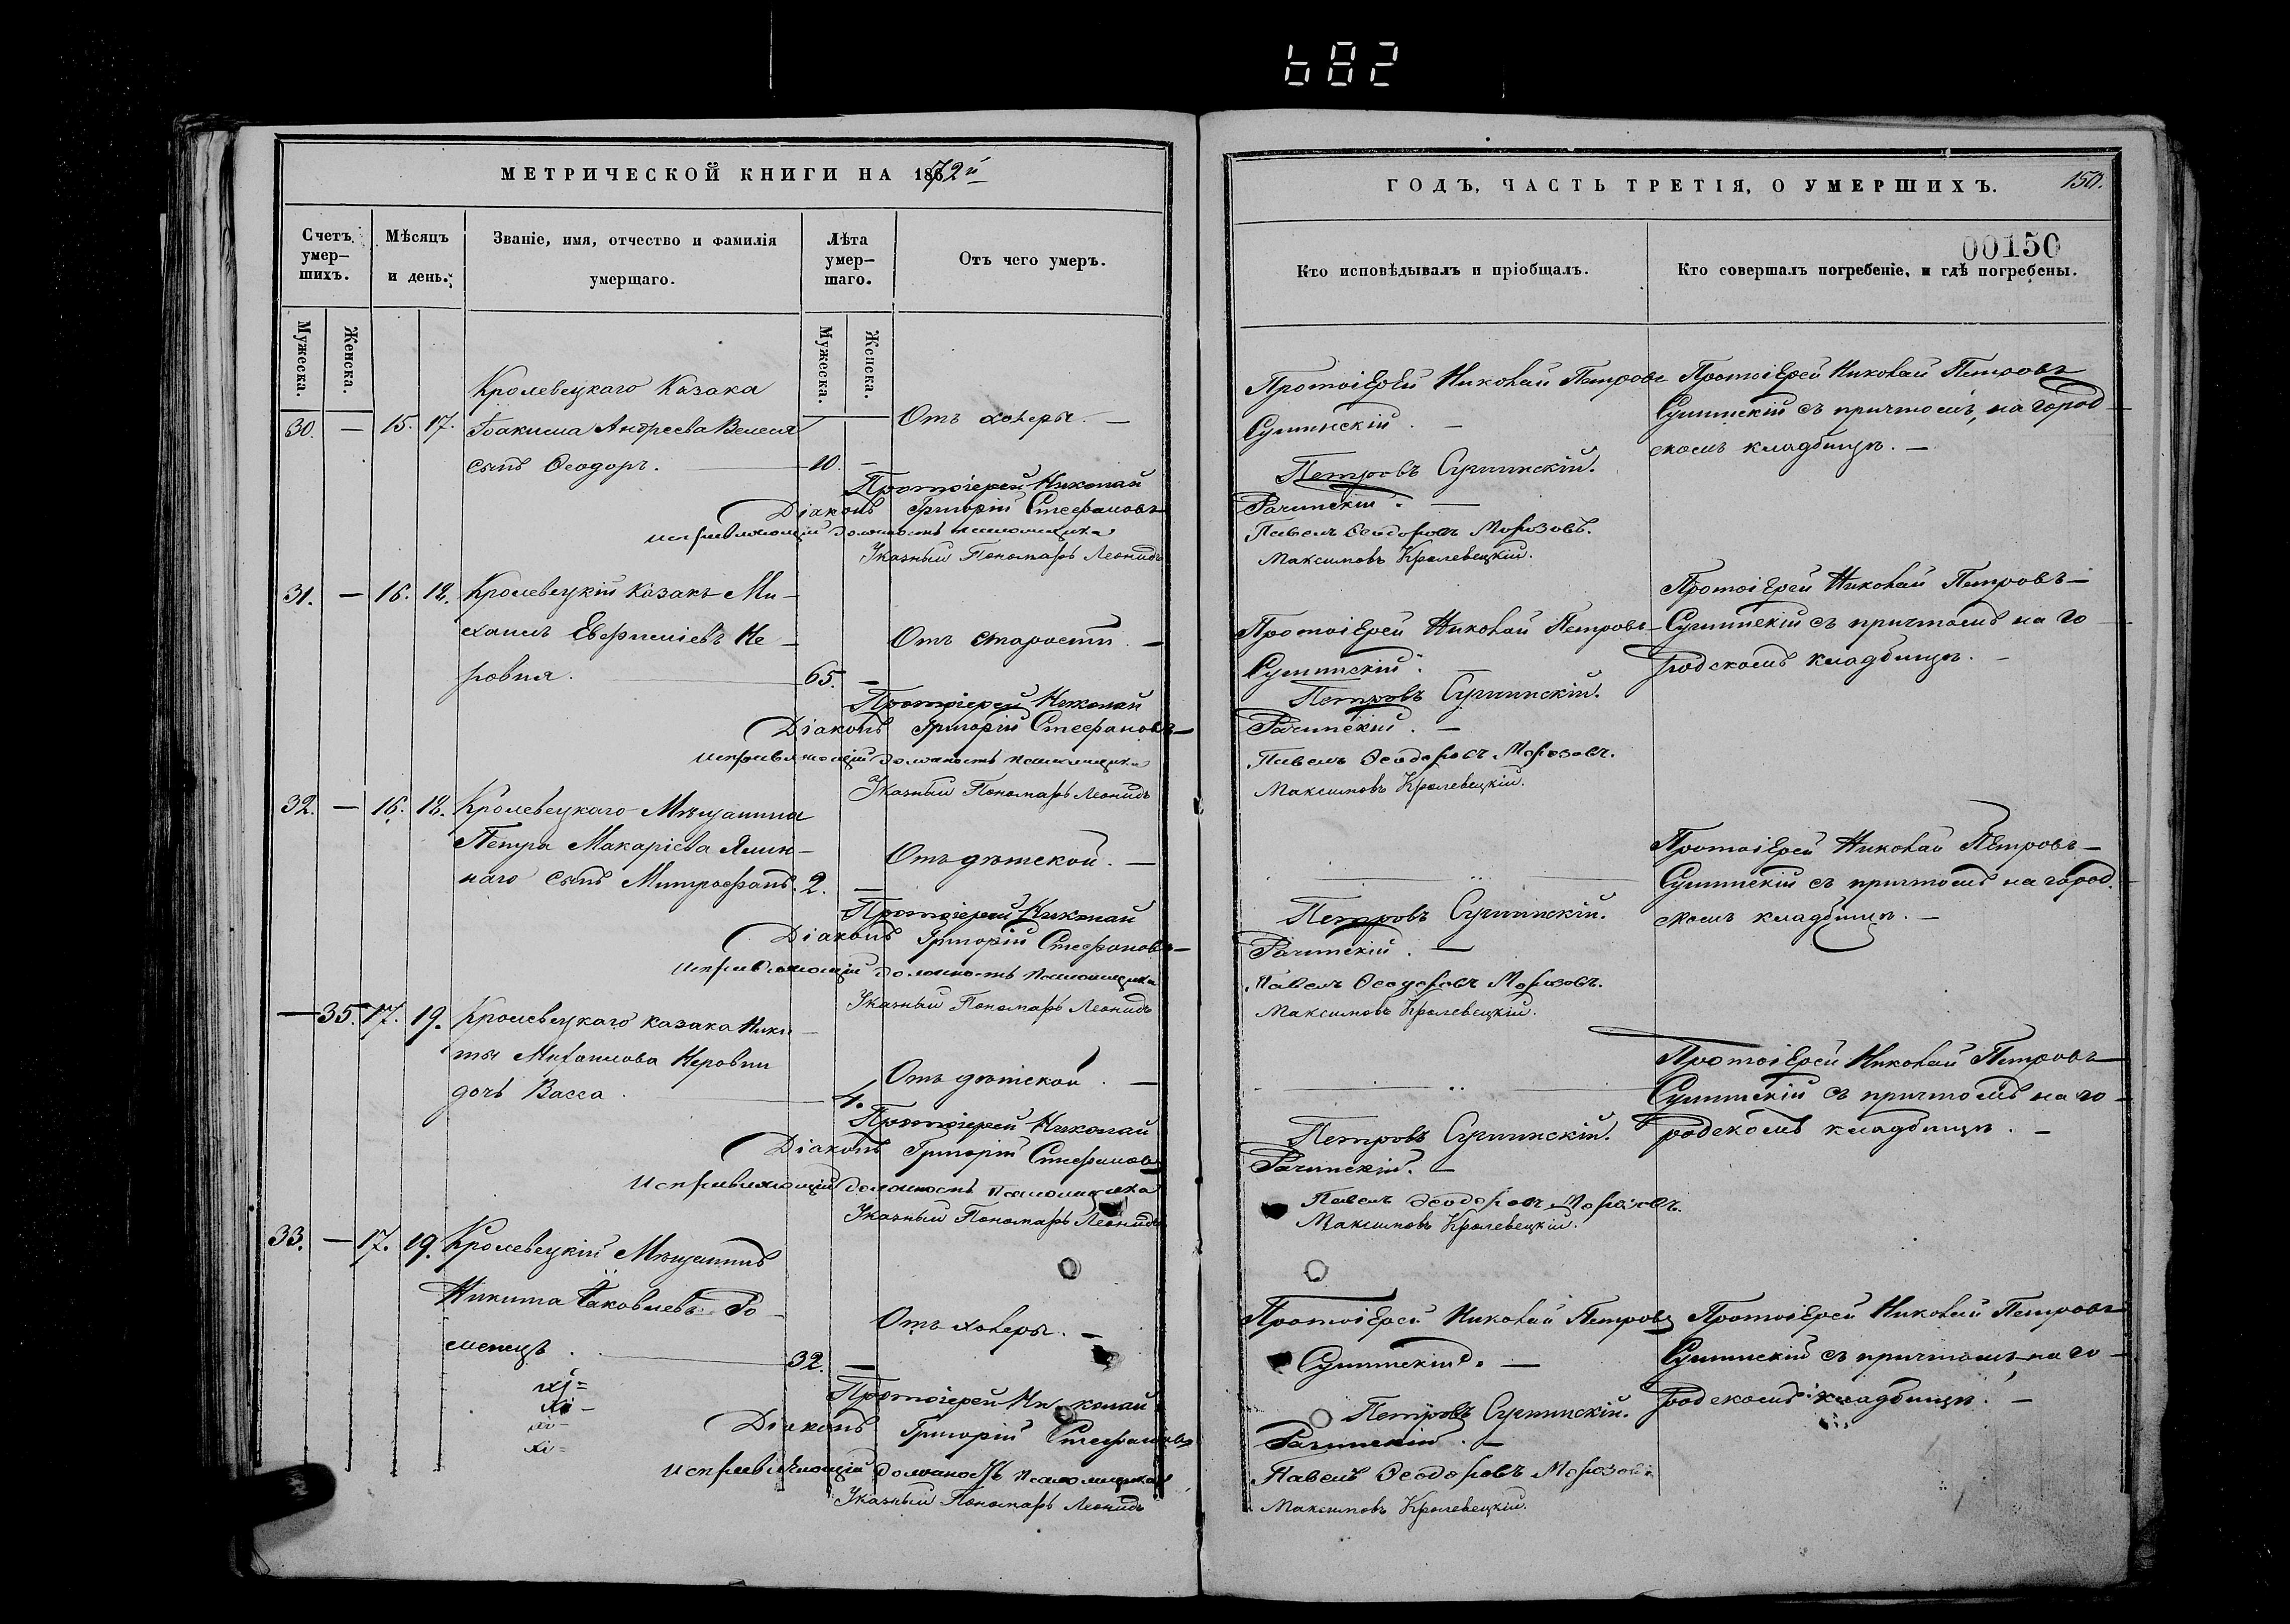 682
МЕТРИЧЕСКОЙ КНИГИ НА 1872й
Счетъ умер–шихъ.
Мѣсяцъ и день.
Званіе, имя, отчество и фамилія умершаго.
Лѣта умер–шаго.
Отъ чего умеръ.
Мужеска.
Женска.
Мужеска.
Женска.
Кролевецкаго Казака
30. — 15. 17. Іоакима Андреева Отъ холеры. —
сынъ Ѳеодоръ. 10. —
Протоіерей Николай
Діаконъ Григорій Стефановъ
исправляющій должность псаломщика
Указный Пономарь Леонидъ
31. — 16. 18. Кролевецкій Казакъ Ми–
хаилъ Евфиміевъ Не– Отъ старости. —
ровня. 65. —
Протоіерей Николай
Діаконъ Григорій Стефановъ
исправляющій должность псаломщика
Указный Пономарь Леонидъ
32. — 16. 18. Кролевецкаго Мѣщанина
Петра Макаріева Ямн– Отъ дѣтской. —
наго сынъ Митрофанъ. 2. —
Протоіерей Николай
Діаконъ Григорій Стефановъ
исправляющій должность псаломщика
Указный Пономарь Леонидъ
— 35. 17. 19. Кролевецкаго казака Ники–
ты Михаилова Неровни Отъ дѣтской. —
дочь Васса. 4.
Протоіерей Николай
Діаконъ Григорій Стефановъ
Исправляющій должность псаломщика
Указный Пономарь Леонидъ
33. — 17. 19. Кролевецкій Мѣщанинъ
Никита Іаковлевъ Ро– Отъ холеры. —
менецъ. 32. —
Протоіерей Николай
Діаконъ Григорій Стефановъ
исправляющій должность псаломщика
Указный Пономарь Леонидъ
ГОДЪ, ЧАСТЬ ТРЕТІЯ, О УМЕРШИХЪ.
150.
00150
Кто исповѣдывалъ и пріобщалъ.
Кто совершалъ погребеніе, и гдѣ погребены.
Протоіерей Николай Петровъ Протоіерей Николай Петровъ
Сулимскій. — Сулимскій съ причтомъ, на город–
скомъ кладбищѣ. —
Петровъ Сулимскій.
Рачинскій. —
Павелъ Ѳеодоровъ Морозовъ.
Максимовъ Кролевецкій.
Протоіерей Николай Петровъ —
Протоіерей Николай Петровъ Сулимскій съ причтомъ на го–
Сулимскій. родскомъ кладбищѣ. —
Петровъ Сулимскій.
Рачинскій. —
Павелъ Ѳеодоровъ Морозовъ.
Максимовъ Кролевецкій.
Протоіерей Николай Петровъ —
Сулимскій съ причтомъ на город–
Петровъ Сулимскій. скомъ кладбищѣ. —
Рачинскій. —
Павелъ Ѳеодоровъ Морозовъ.
Максимовъ Кролевецкій.
Протоіерей Николай Петровъ
Сулимскій съ причтомъ на го–
Петровъ Сулимскій. родскомъ кладбищѣ. —
Рачинскій. —
Павелъ Ѳеодоровъ Морозовъ.
Максимовъ Кролевецкій.
Протоіерей Николай Петровъ Протоіерей Николай Петровъ
Сулимскій. — Сулимскій съ причтомъ на го–
Петровъ Сулимскій. родскомъ кладбищѣ. —
Рачинскій. —
Павелъ Ѳеодоровъ Морозовъ
Максимовъ Кролевецкій.